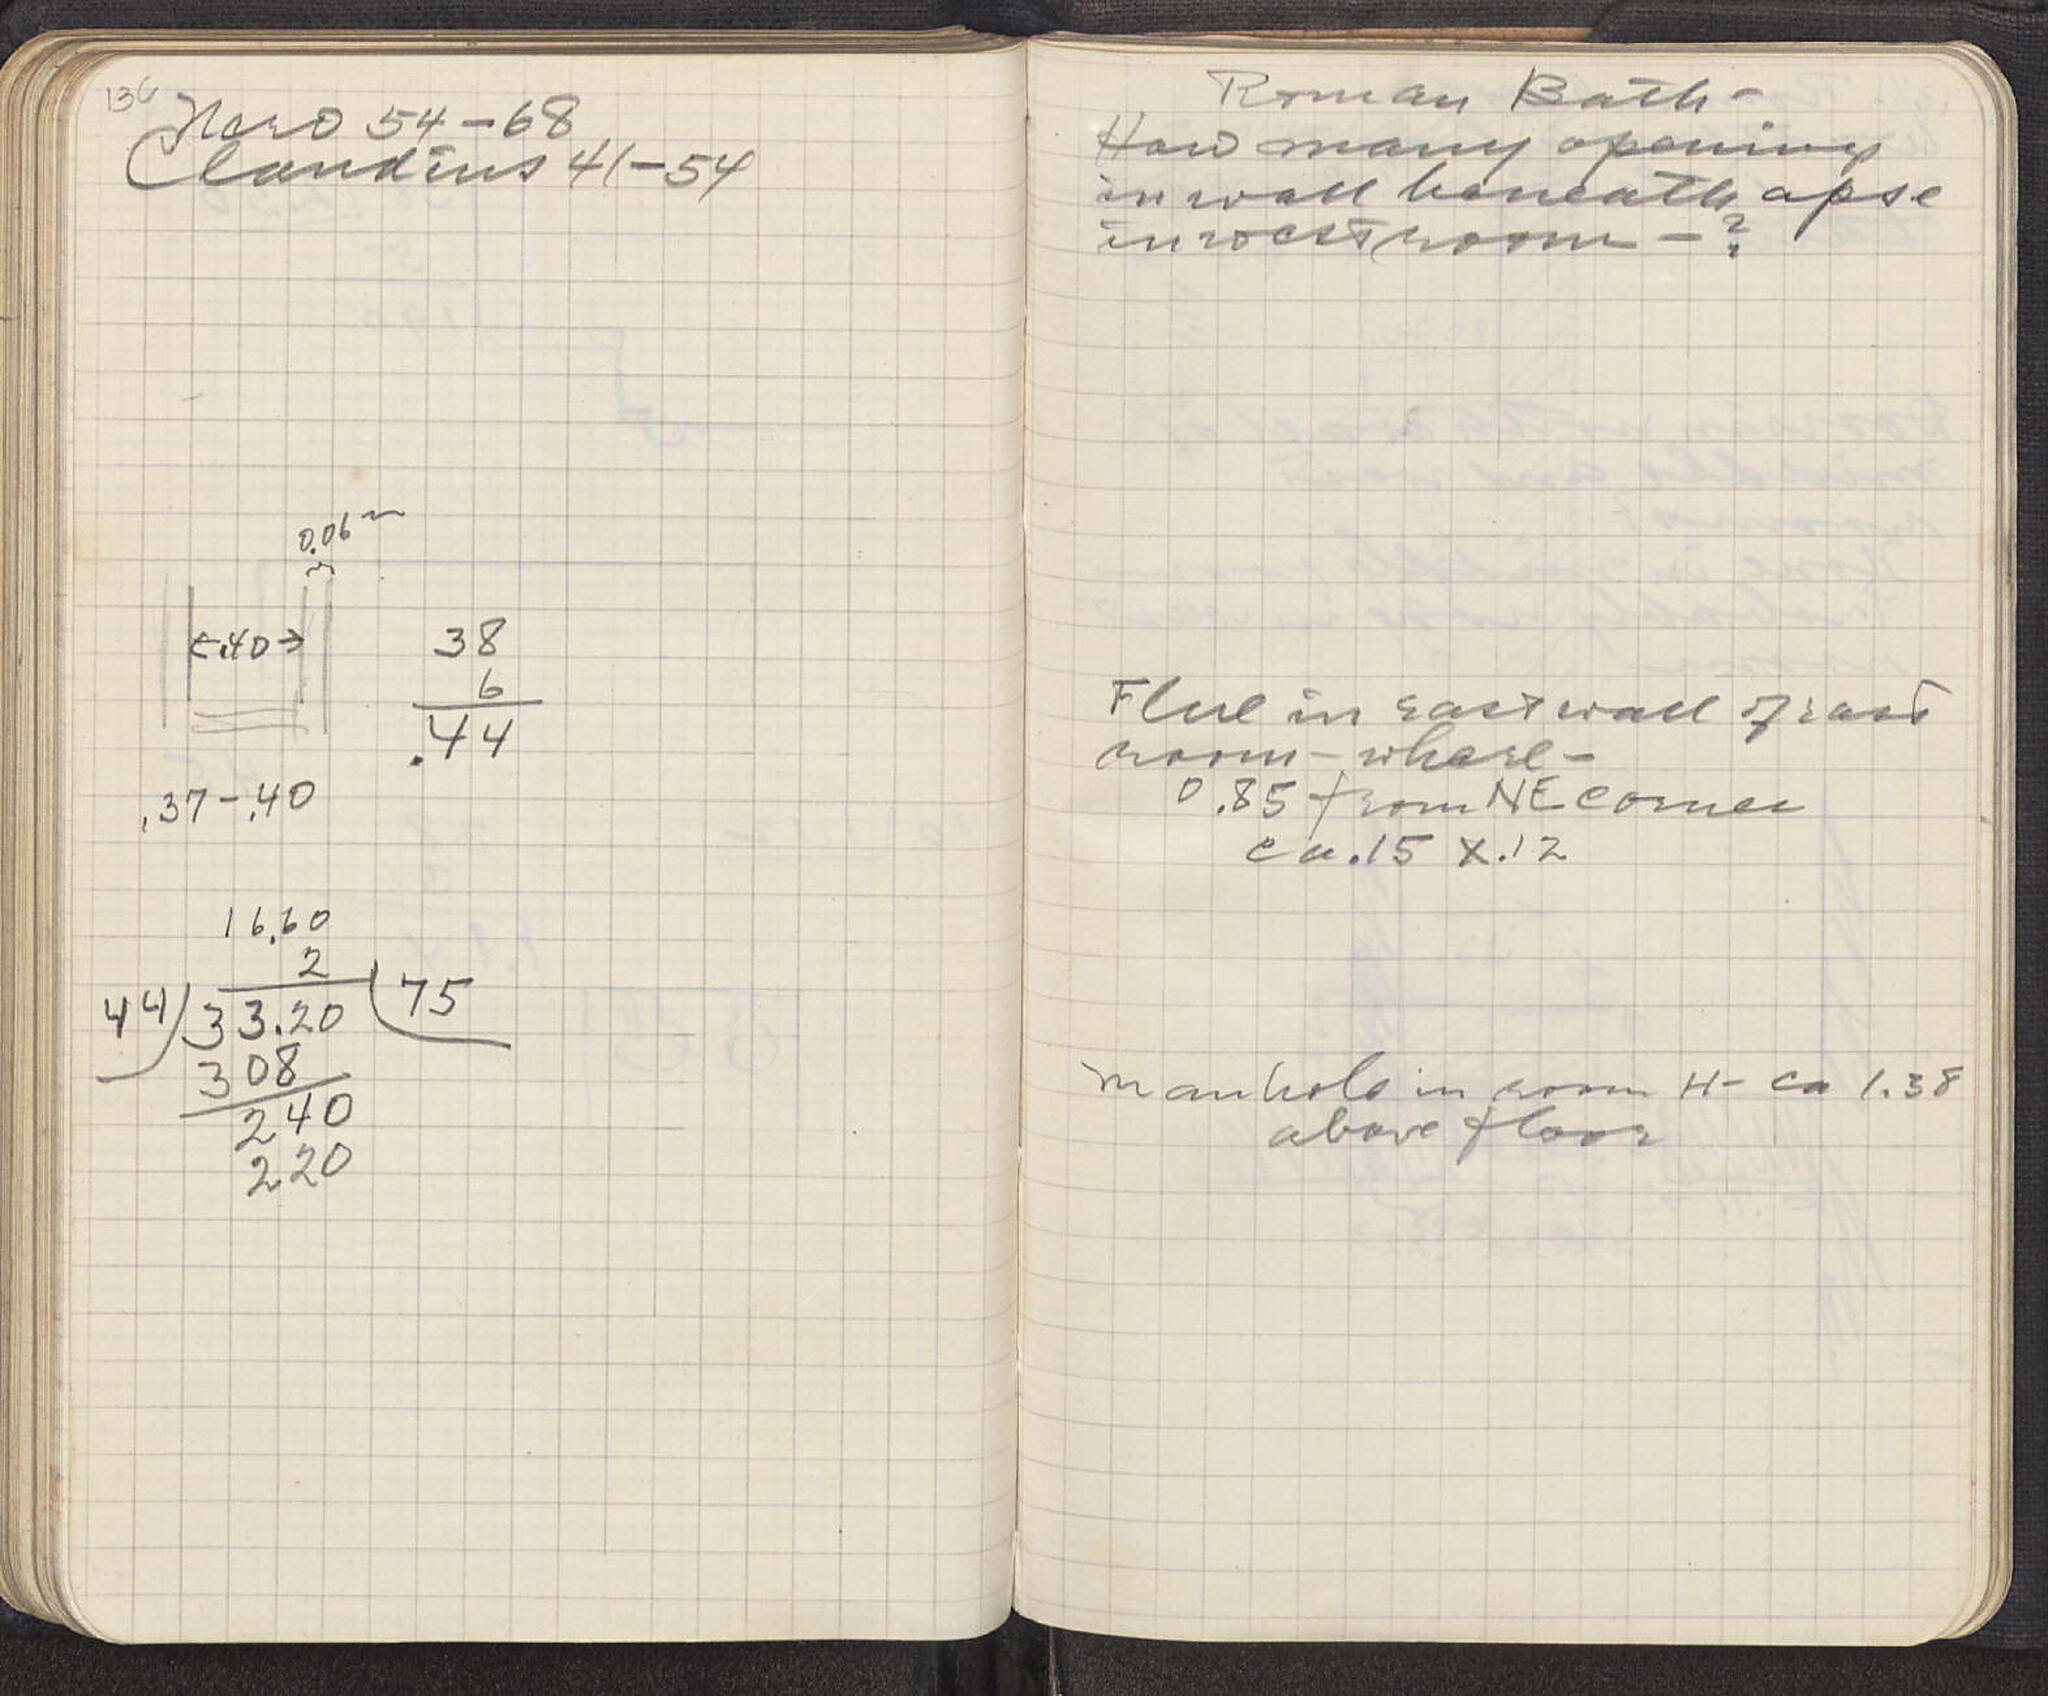 136
Nero 54-68
Claudius 41-54
0.06 m
.40
38
6
.44
.37-.40
16.60
2
44 33.20 75
308
240
220
Roman Bath-
How many openings
in wall beneath apse
in west room - ?
Flue in east wall of east
room - where -
0.85 from NE corner
ca .15 x .12
Manhole in room H - ca 1.38
above floor